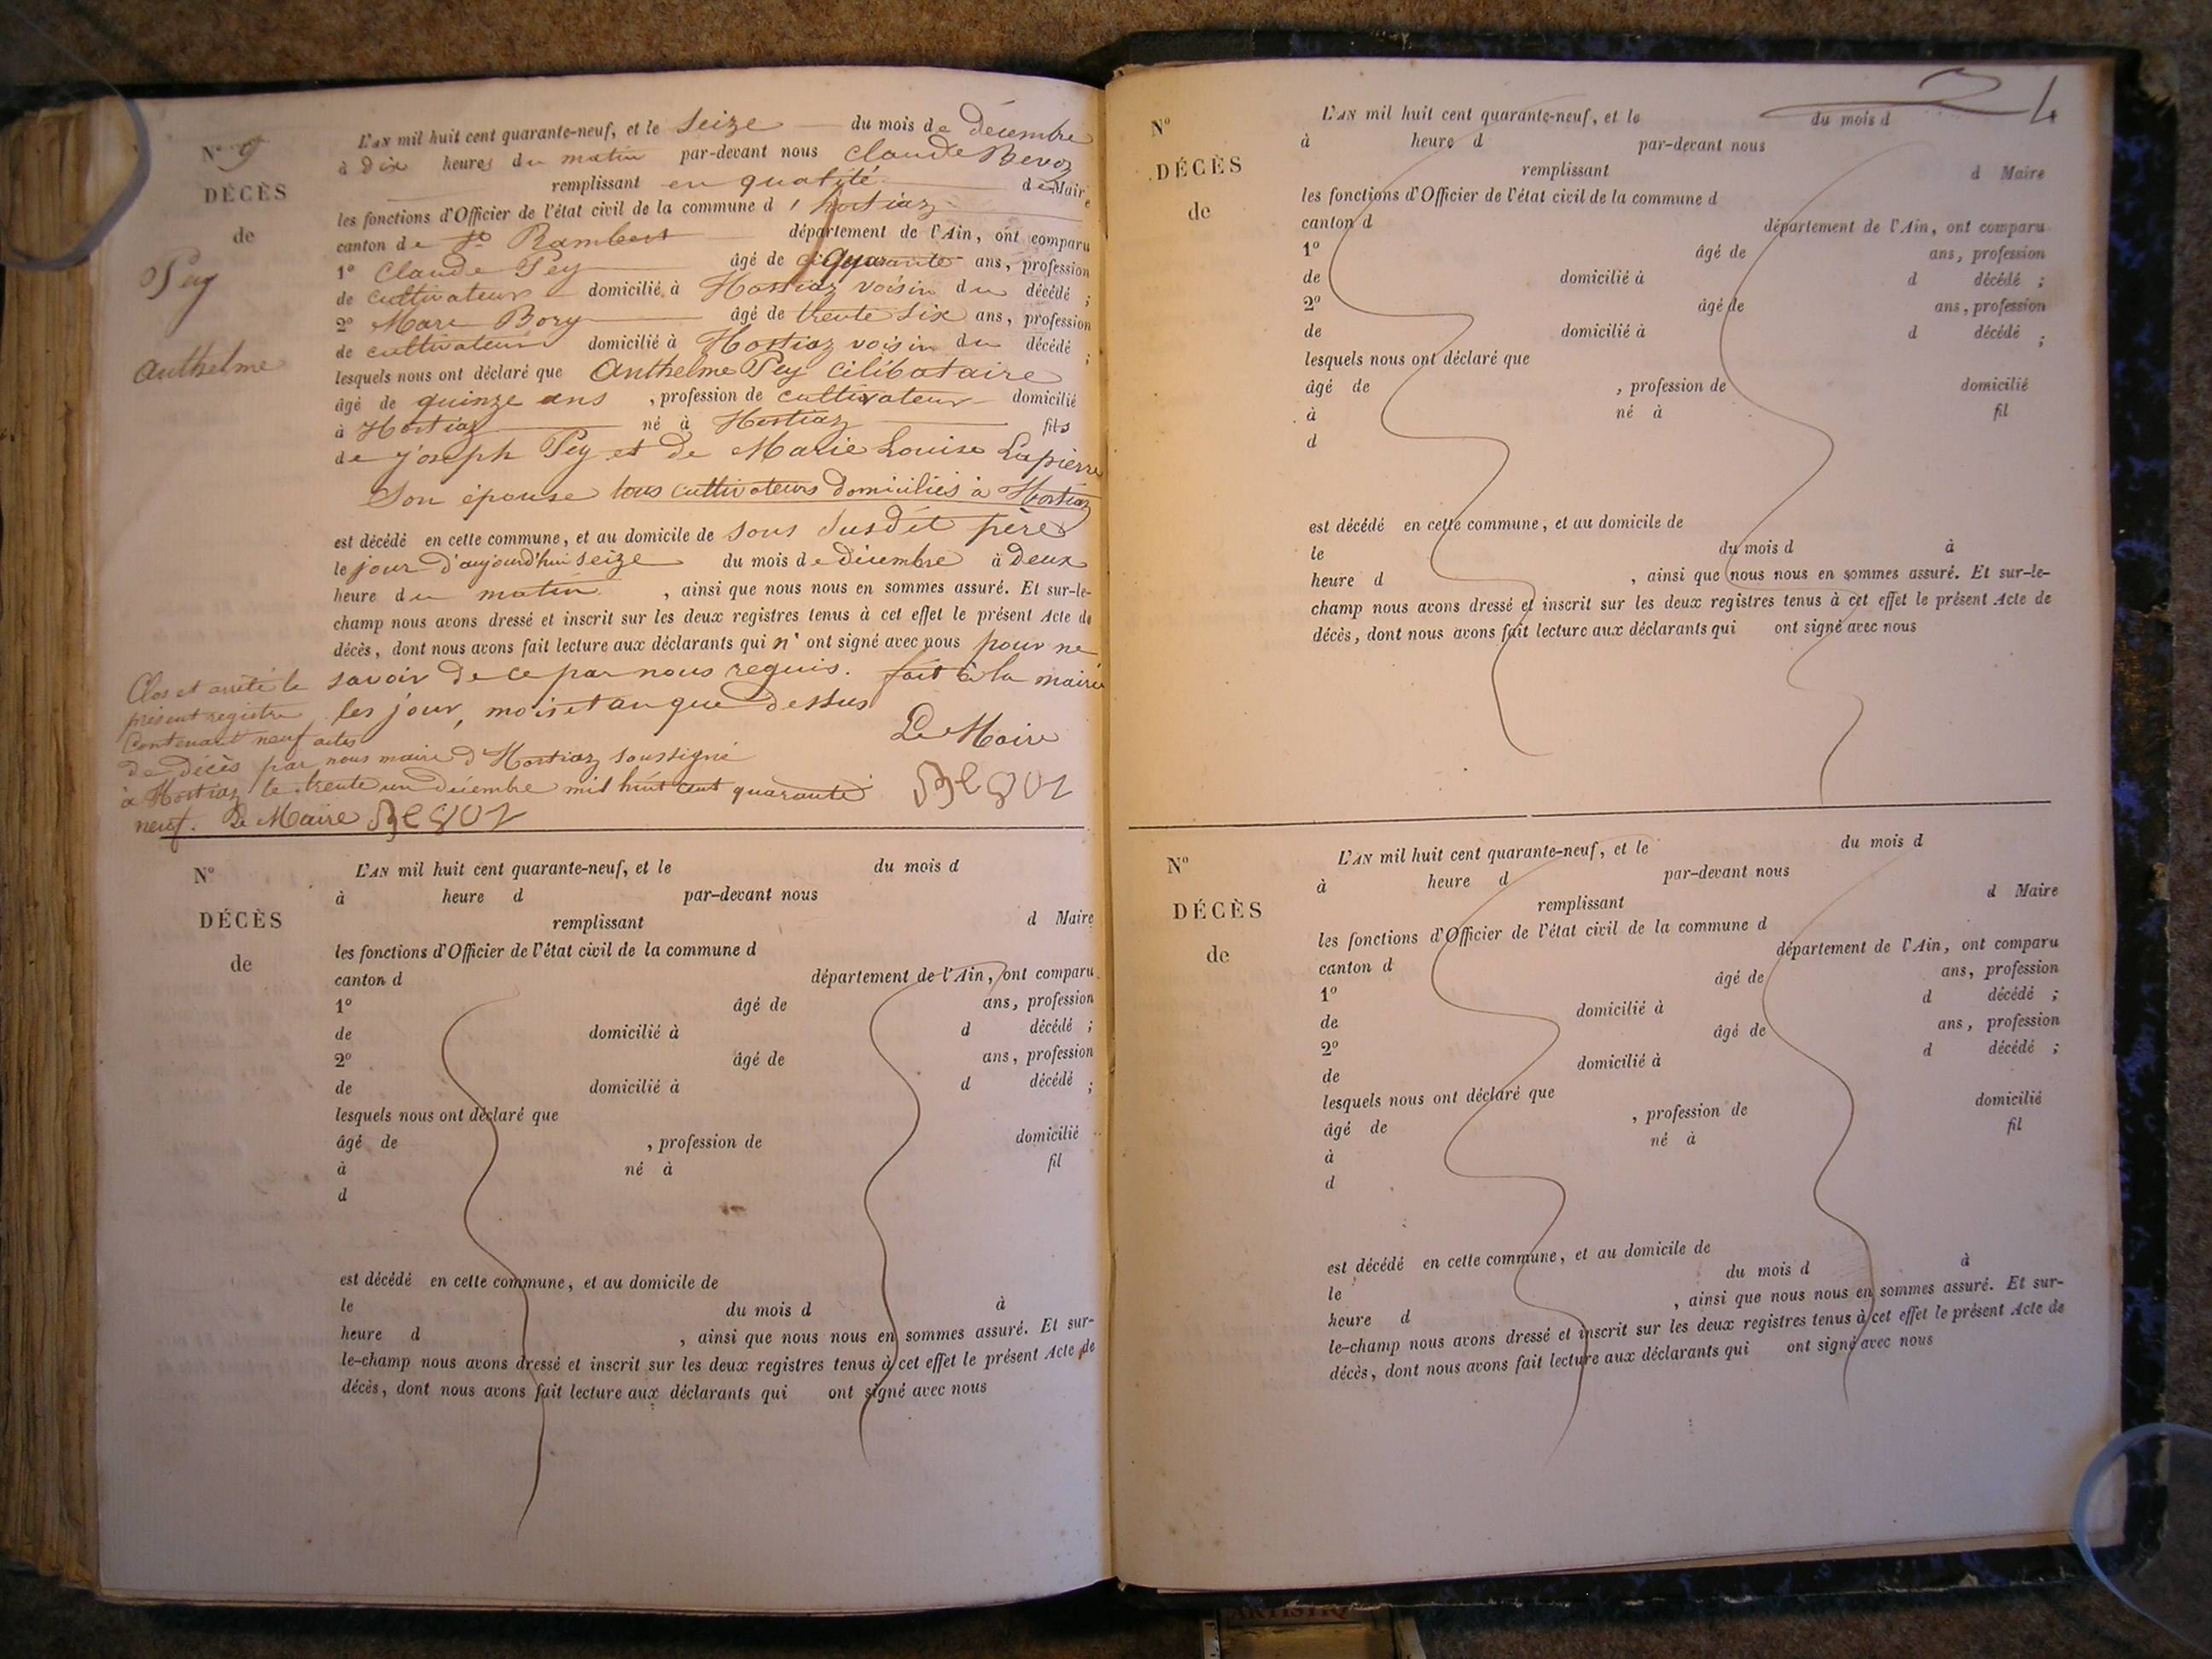 N° 9
DÉCÈS
de
Pey
Anthelme
L'AN mil huit cent quarante-neuf, et le Seize du mois de décembre
à dix heures du matin par-devant nous Claude
remplissant en qualité de Maire
les fonctions d'Officier de l'état civil de la commune d'hostiaz
canton de St Rambert département de l'Ain, ont comparu
1° Claude Pey âgé de quarante ans, profession
de cultivateur domicilié à Hostiaz voisin du décédé ;
2° Marc Bory âgé de trente six ans, profession
de cultivateur domicilié à Hostiaz voisin du décédé ;
lesquels nous ont déclaré que Anthelme Pey célibataire
âgé de quinze ans , profession de cultivateur domicilié
à Hostiaz né à Hostiaz fils
de joseph Pey et de Marie Louise Lapierre
Son épouse tous cultivateurs domiciliés à Hostiaz
est décédé en cette commune, et au domicile de sous susdit père
le jour d'aujourd'hui seize du mois de décembre à Deux
heure du matin , ainsi que nous nous en sommes assuré. Et sur-le-
champ nous avons dressé et inscrit sur les deux registres tenus à cet effet le présent Acte de
décès, dont nous avons fait lecture aux déclarants qui n' ont signé avec nous pour ne
savoir de ce par nous requis. fait à la mairie
les jour, mois et an que dessus
Le Maire
Clos et arrêté le
présent registre
Contenant neuf actes
de décès par nous maire d'Hostiaz soussigné
à Hostiaz le trente un décembre mil huit cent quarante
neuf. Le Maire
N°
DÉCÈS
de
L'AN mil huit cent quarante-neuf, et le du mois d
à heure d par-devant nous
remplissant d Maire
les fonctions d'Officier de l'état civil de la commune d
canton d département de l'Ain, ont comparu
1° âgé de ans, profession
de domicilié à d décédé ;
2° âgé de ans, profession
de domicilié à d décédé ;
lesquels nous ont déclaré que
âgé de , profession de domicilié
à né à fil
d
est décédé en cette commune, et au domicile de
le du mois d à
heure d , ainsi que nous nous en sommes assuré. Et sur-
le-champ nous avons dressé et inscrit sur les deux registres tenus à cet effet le présent Acte de
décès, dont nous avons fait lecture aux déclarants qui ont signé avec nous
N°
DÉCÈS
de
L'AN mil huit cent quarante-neuf, et le du mois d
à heure d par-devant nous
remplissant d Maire
les fonctions d'Officier de l'état civil de la commune d
canton d département de l'Ain, ont comparu
1° âgé de ans, profession
de domicilié à d décédé ;
2° âgé de ans, profession
de domicilié à d décédé ;
lesquels nous ont déclaré que
âgé de , profession de domicilié
à né à fil
d
est décédé en cette commune, et au domicile de
le du mois d à
heure d , ainsi que nous nous en sommes assuré. Et sur-le-
champ nous avons dressé et inscrit sur les deux registres tenus à cet effet le présent Acte de
décès, dont nous avons fait lecture aux déclarants qui ont signé avec nous
N°
DÉCÈS
de
L'AN mil huit cent quarante-neuf, et le du mois d
à heure d par-devant nous
remplissant d Maire
les fonctions d'Officier de l'état civil de la commune d
canton d département de l'Ain, ont comparu
1° âgé de ans, profession
de domicilié à d décédé ;
2° âgé de ans, profession
de domicilié à d décédé ;
lesquels nous ont déclaré que
âgé de , profession de domicilié
à né à fil
d
est décédé en cette commune, et au domicile de
le du mois d à
heure d , ainsi que nous nous en sommes assuré. Et sur-
le-champ nous avons dressé et inscrit sur les deux registres tenus à cet effet le présent Acte de
décès, dont nous avons fait lecture aux déclarants qui ont signé avec nous